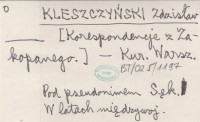 0
KLESZCZYŃSKI Zdzisław
— [Korespondencje z Za-
kopanego.] — Kur. Warsz.
BJ/02.5/1197
Pod pseudonimem Sęk.
W latach międzywoj.